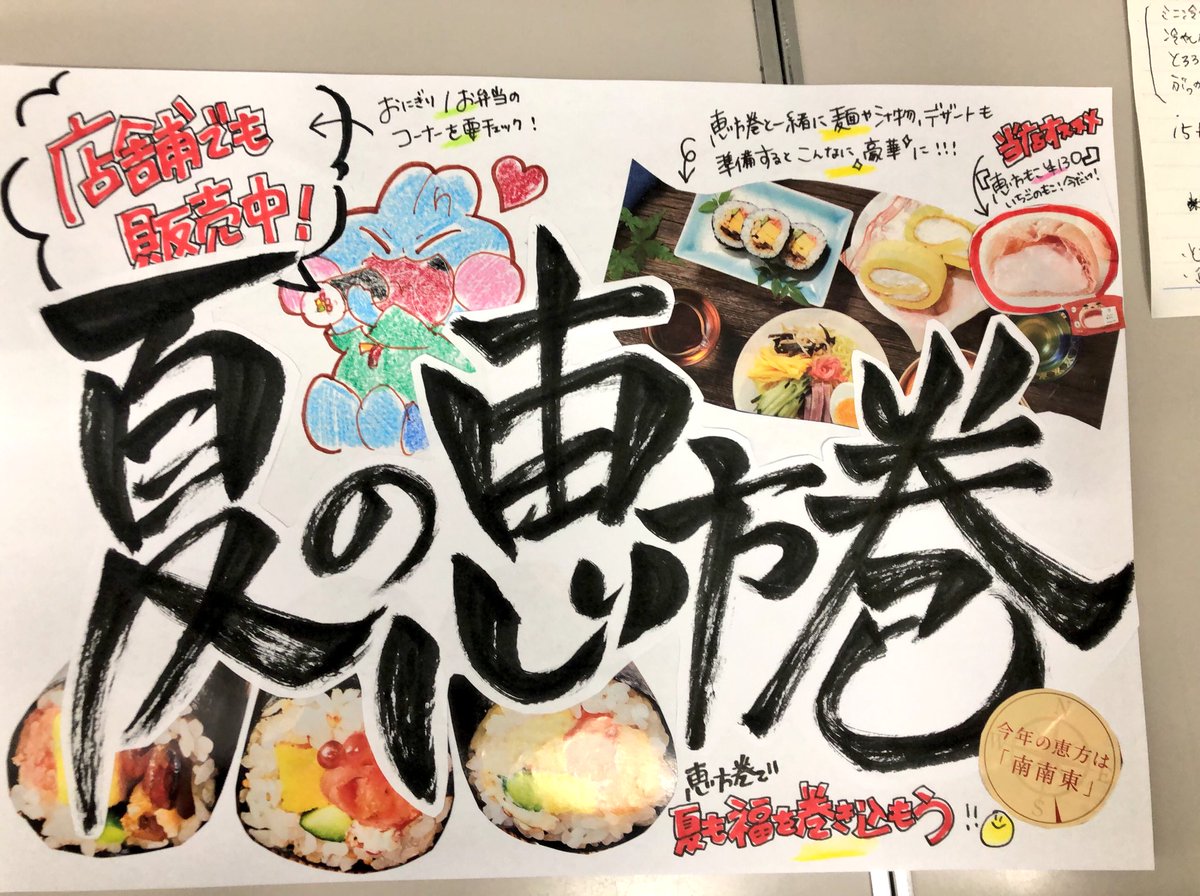 店舗でも
販売中!
おにぎり/お弁当の
コーナーを要チェック!
恵方巻と一緒に麺や汁物、デザートも
準備するとこんなに豪華に!!!
当店オススメ
『恵方もこ ¥130』
いちごのもこ!今だけ!
夏の恵方巻
恵方巻で
夏も福も巻き込もう!!
今年の恵方は
「南南東」